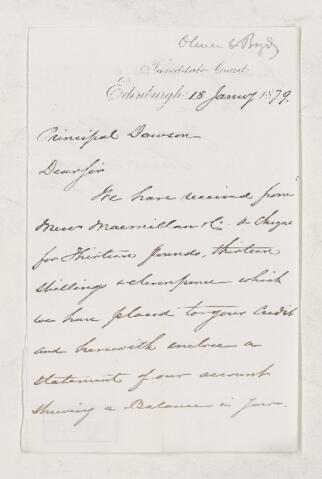 Oliver & Boyd
Tweeddale Court
Edinburgh 18 Januy 1879.
Principal Dawson
Dear Sir
We have received from
Messrs Macmillan & Co. a Cheque
for Thirteen pounds, thirteen
shillings & elevenpence which
we have placed to your Credit
and herewith enclose a
statement of our account
shewing a Balance in your